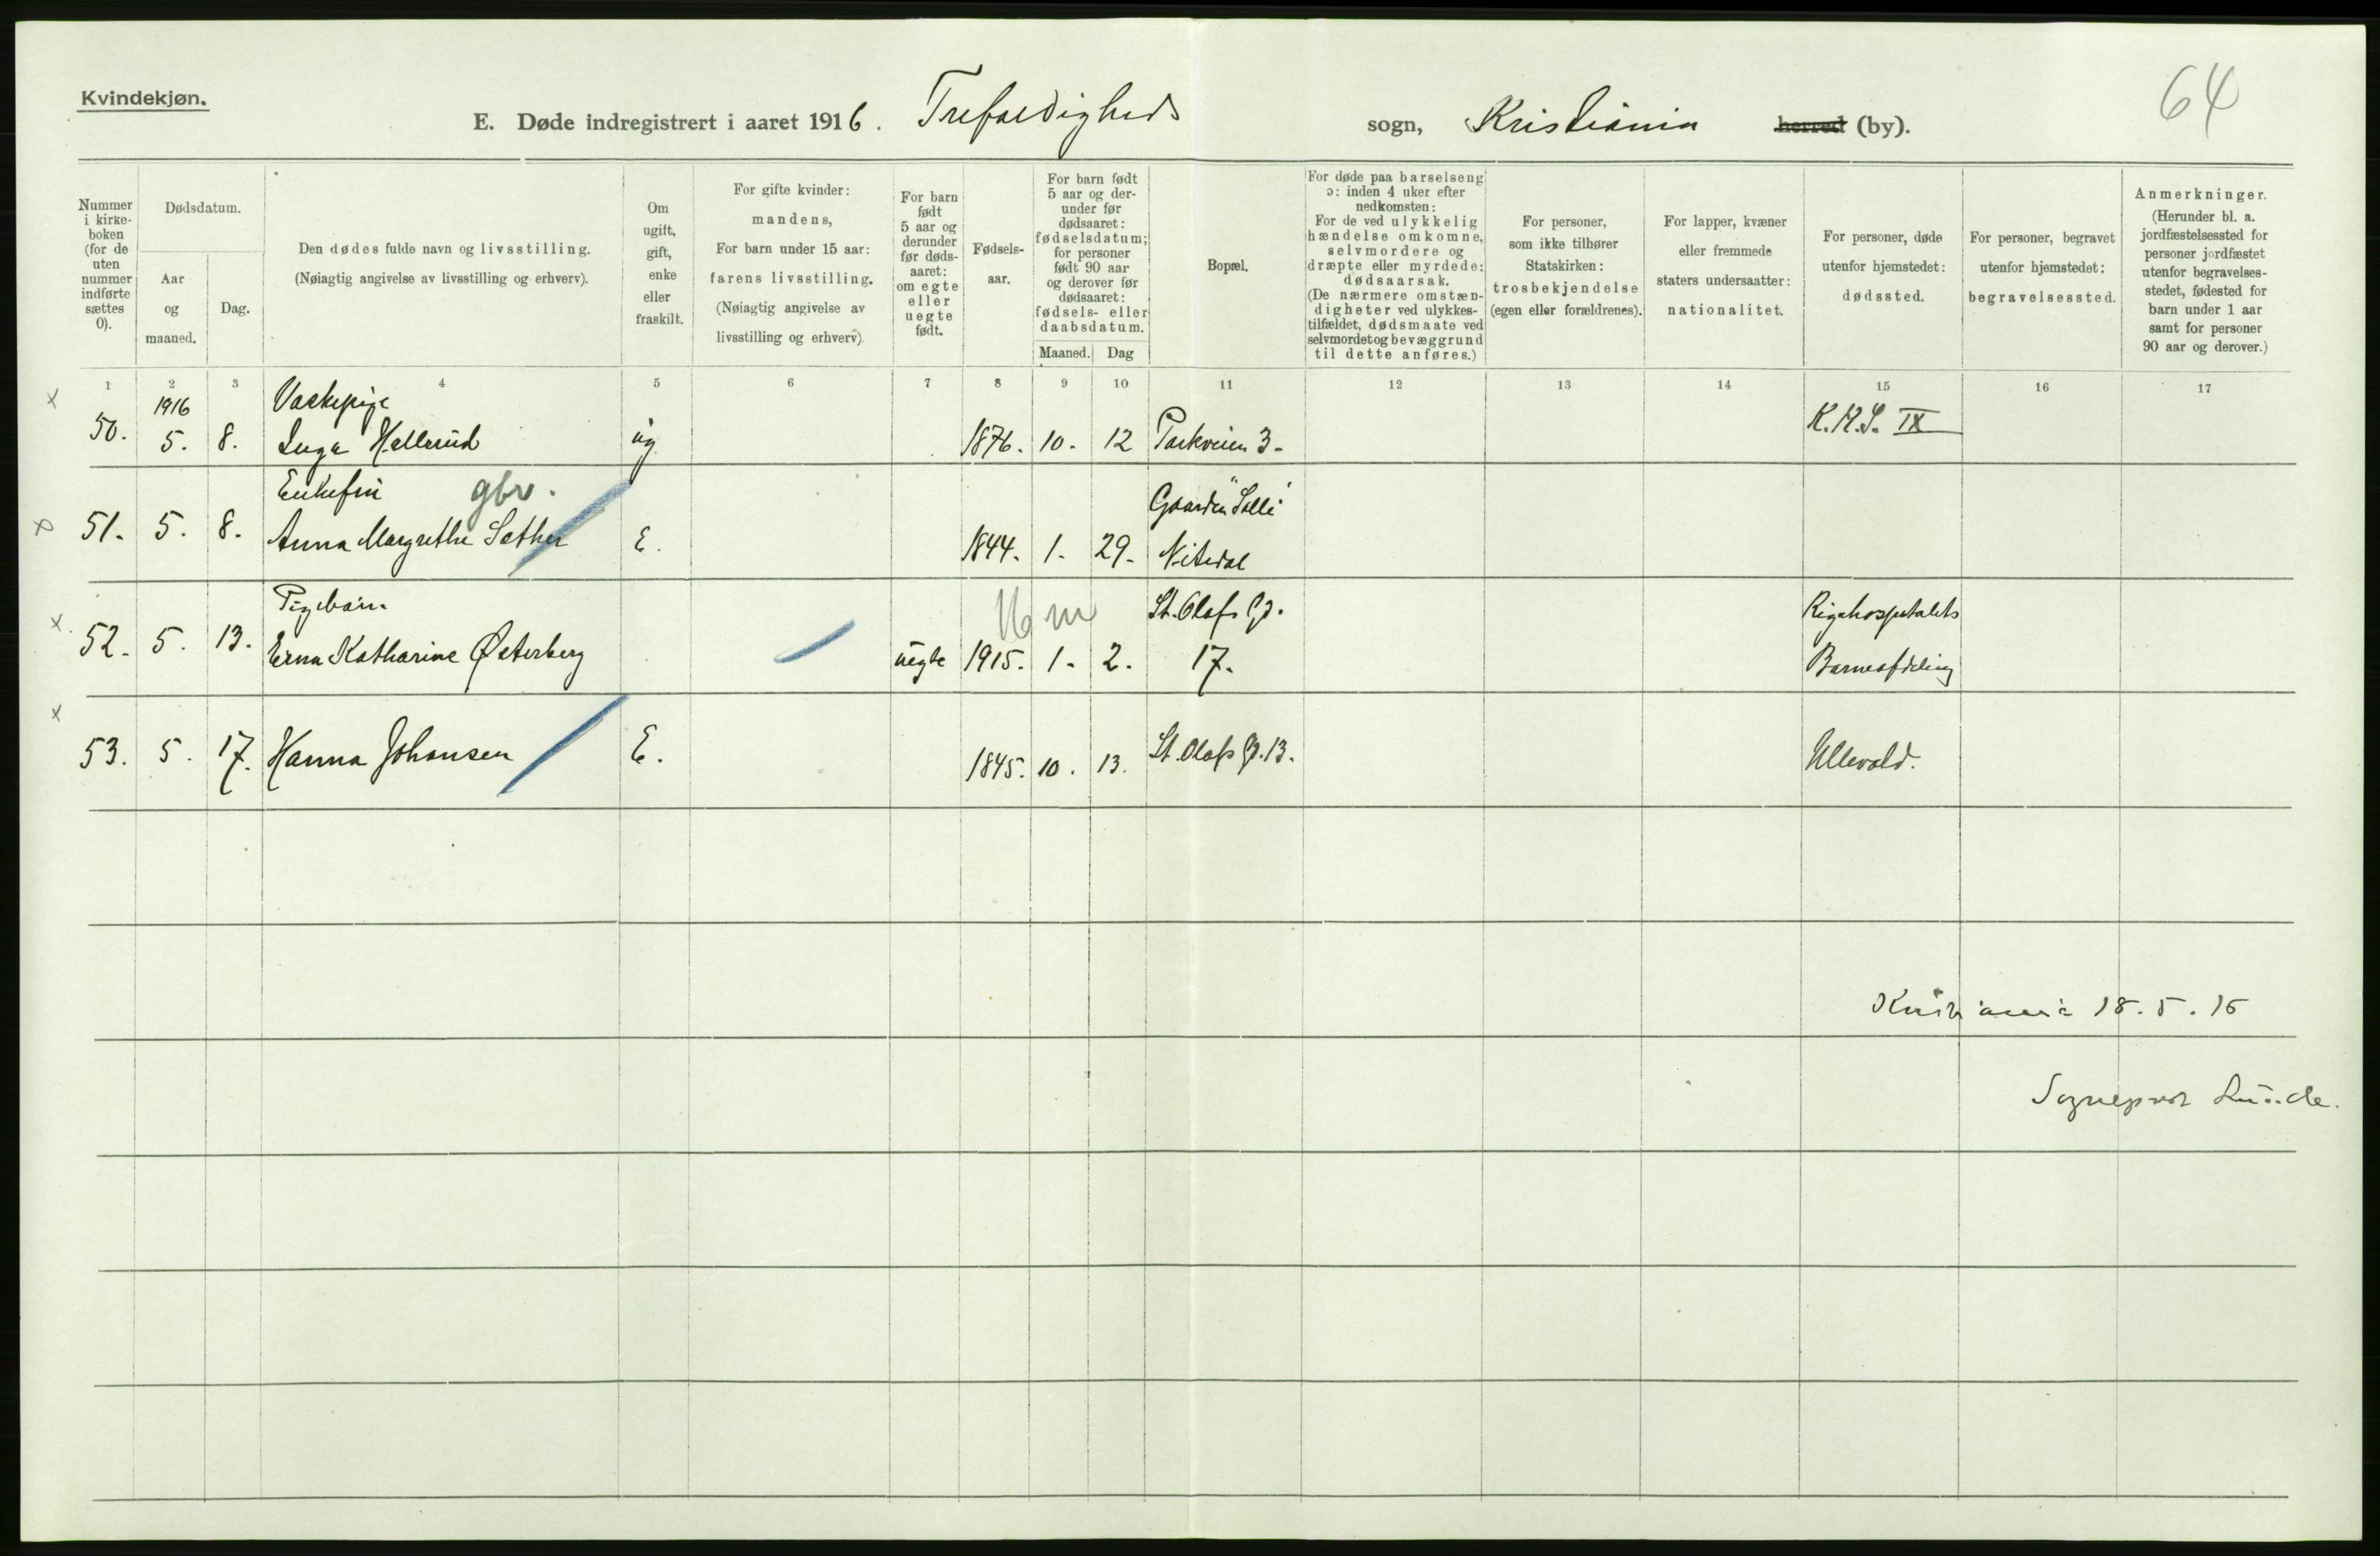 Kvindekjøn.
64
E. Døde indregistrert i aaret 1916. Trefoldigheds sogn, Kristiania herred (by).
Nummer i kirkeboken (for de uten nummer indførte sættes 0).
Dødsdatum.
Aar og maaned.
Dag.
Den dødes fulde navn og livsstilling.
(Nøiagtig angivelse av livsstilling og erhverv).
Om ugift, gift, enke eller fraskilt.
For gifte kvinder: mandens,
For barn under 15 aar: farens livsstilling.
(Nøiagtig angivelse av livsstilling og erhverv).
For barn født 5 aar og derunder før dødsaaret: om egte eller uegte født.
Fødselsaar.
For barn født 5 aar og derunder før dødsaaret: fødselsdatum; for personer født 90 aar og derover før dødsaaret: fødsels- eller daabsdatum.
Maaned.
Dag
Bopæl.
For døde paa barselseng ɔ: inden 4 uker efter nedkomsten:
For de ved ulykkelig hændelse omkomne, selvmordere og dræpte eller myrdede: dødsaarsak.
(De nærmere omstændigheter ved ulykkestilfældet, dødsmaate ved selvmordet og bevæggrund til dette anføres.)
For personer, som ikke tilhører Statskirken: trosbekjendelse (egen eller forældrenes).
For lapper, kvæner eller fremmede staters undersaatter: nationalitet.
For personer, døde utenfor hjemstedet: dødssted.
For personer, begravet utenfor hjemstedet: begravelsessted.
Anmerkninger.
(Herunder bl. a. jordfæstelsessted for personer jordfæstet utenfor begravelsesstedet, fødested for barn under 1 aar samt for personer 90 aar og derover.)
1 2 3 4 5 6 7 8 9 10 11 12 13 14 15 16 17
x 1916 Vaskepige K.K.S. IX
50. 5. 8. Inga Hellerud ug 1876. 10. 12 Parkveien 3.
Enkefru gbr. Gaarden "Solli"
x 51. 5. 8. Anna Margrethe Sæther E. 1844. 1. 29. Nitedal
Pigebarn 16 m St. Olafs Gd. Rigshospitalets
x 52. 5. 13. Erna Katharine Østerberg uegte 1915. 1. 2. 17. Barneafdeling
x 53. 5. 17. Hanna Johansen E. 1845. 10. 13. St. Olafs Gd. 13. Ullevold.
Kristiania 18.5.16
Sogneprest Lunde.